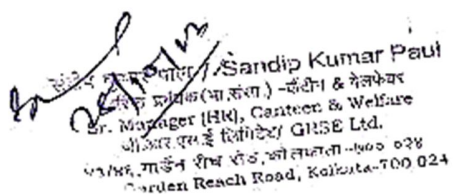 संदीप कुमार पॉल / Sandip Kumar Paul
वरिष्ठ प्रबंधक(मा.संसा.) -कैंटीन & वेलफेयर
Sr. Manager (HR), Canteen & Welfare
जी.आर.एस.ई लिमिटेड/ GRSE Ltd.
गार्डेन रीच रोड, कोलकाता-७०० ०२४
Garden Reach Road, Kolkata-700 024